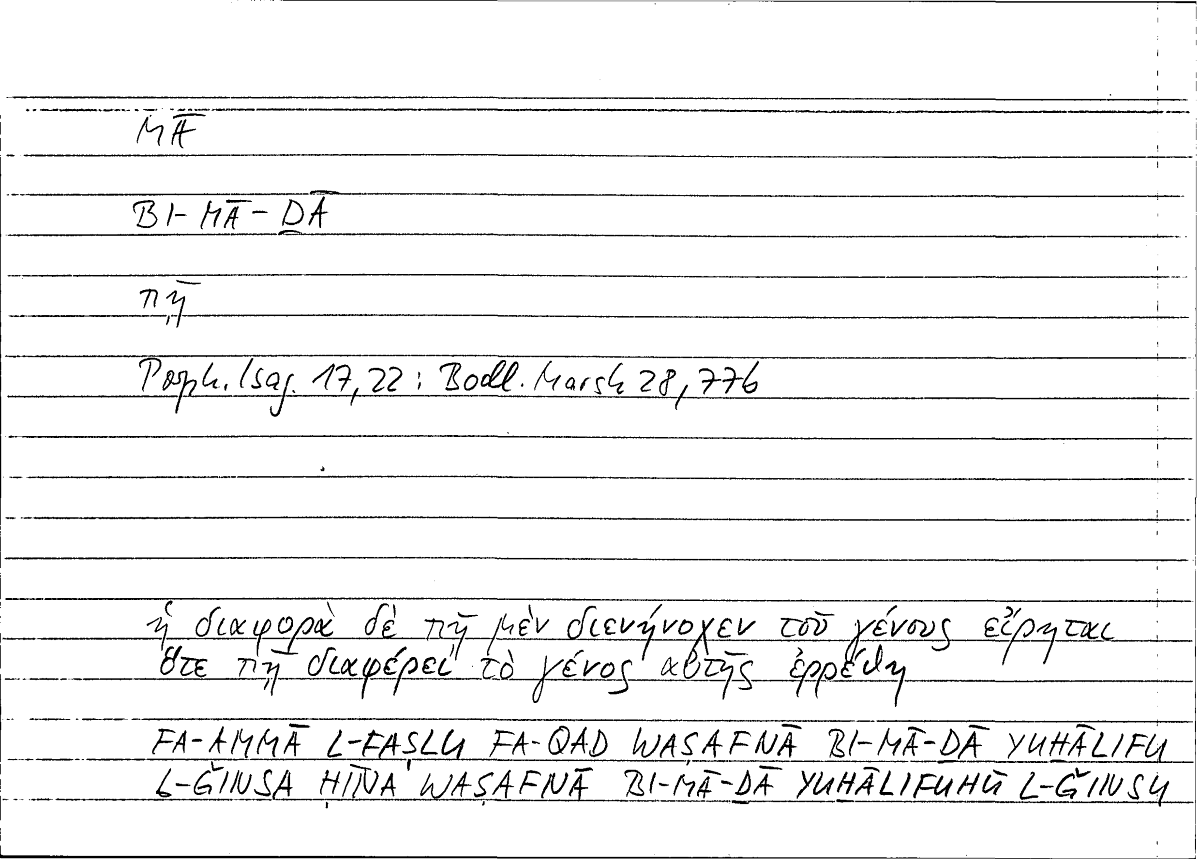 MĀ
BI-MĀ-ḎĀ
πῇ
Porph. Isag. 17,22 : Bodl. Marsh 28,776
ἡ διαφορὰ δὲ πῇ μὲν διενήνοχεν τοῦ γένους εἴρηται
ὅτε πῇ διαφέρει τὸ γένος αὐτῆς ἐρρέθη
FA-AMMĀ L-FAṢLU FA-QAD WAṢAFNĀ BI-MĀ-ḎĀ YUH̱ĀLIFU
L-ǦINSA ḤĪNA WAṢAFNĀ BI-MĀ-ḎĀ YUH̱ĀLIFUHŪ L-ǦINSU